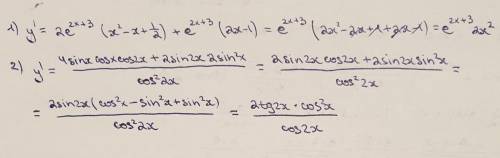 1) y' = 2e^{2x+3} (x² - x + 1/2) + e^{2x+3} (2x - 1) = e^{2x+3} (2x² - 2x + 1 + 2x - 1) = e^{2x+3} 2x²
2) y' = (4 sinx cosx cos2x + 2 sin2x 2 sin²x) / cos²2x = (2 sin2x cos2x + 2 sin2x sin²x) / cos²2x =
= 2 sin2x (cos²x - sin²x + sin²x) / cos²2x = 2tg2x · cos²x / cos2x